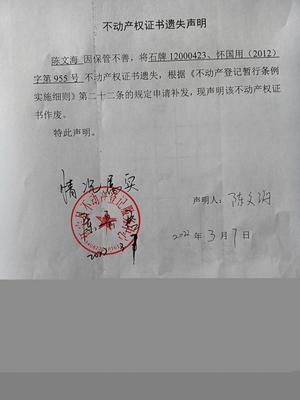 不动产权证书遗失声明
陈文海 因保管不善，将石牌 12000423、怀国用（2012）
字第 955 号 不动产权证书遗失，根据《不动产登记暂行条例
实施细则》第二十二条的规定申请补发，现声明该不动产权证
书作废。
特此声明。
情况属实
声明人：陈文海
2022 年 3 月 7 日
不动产登记